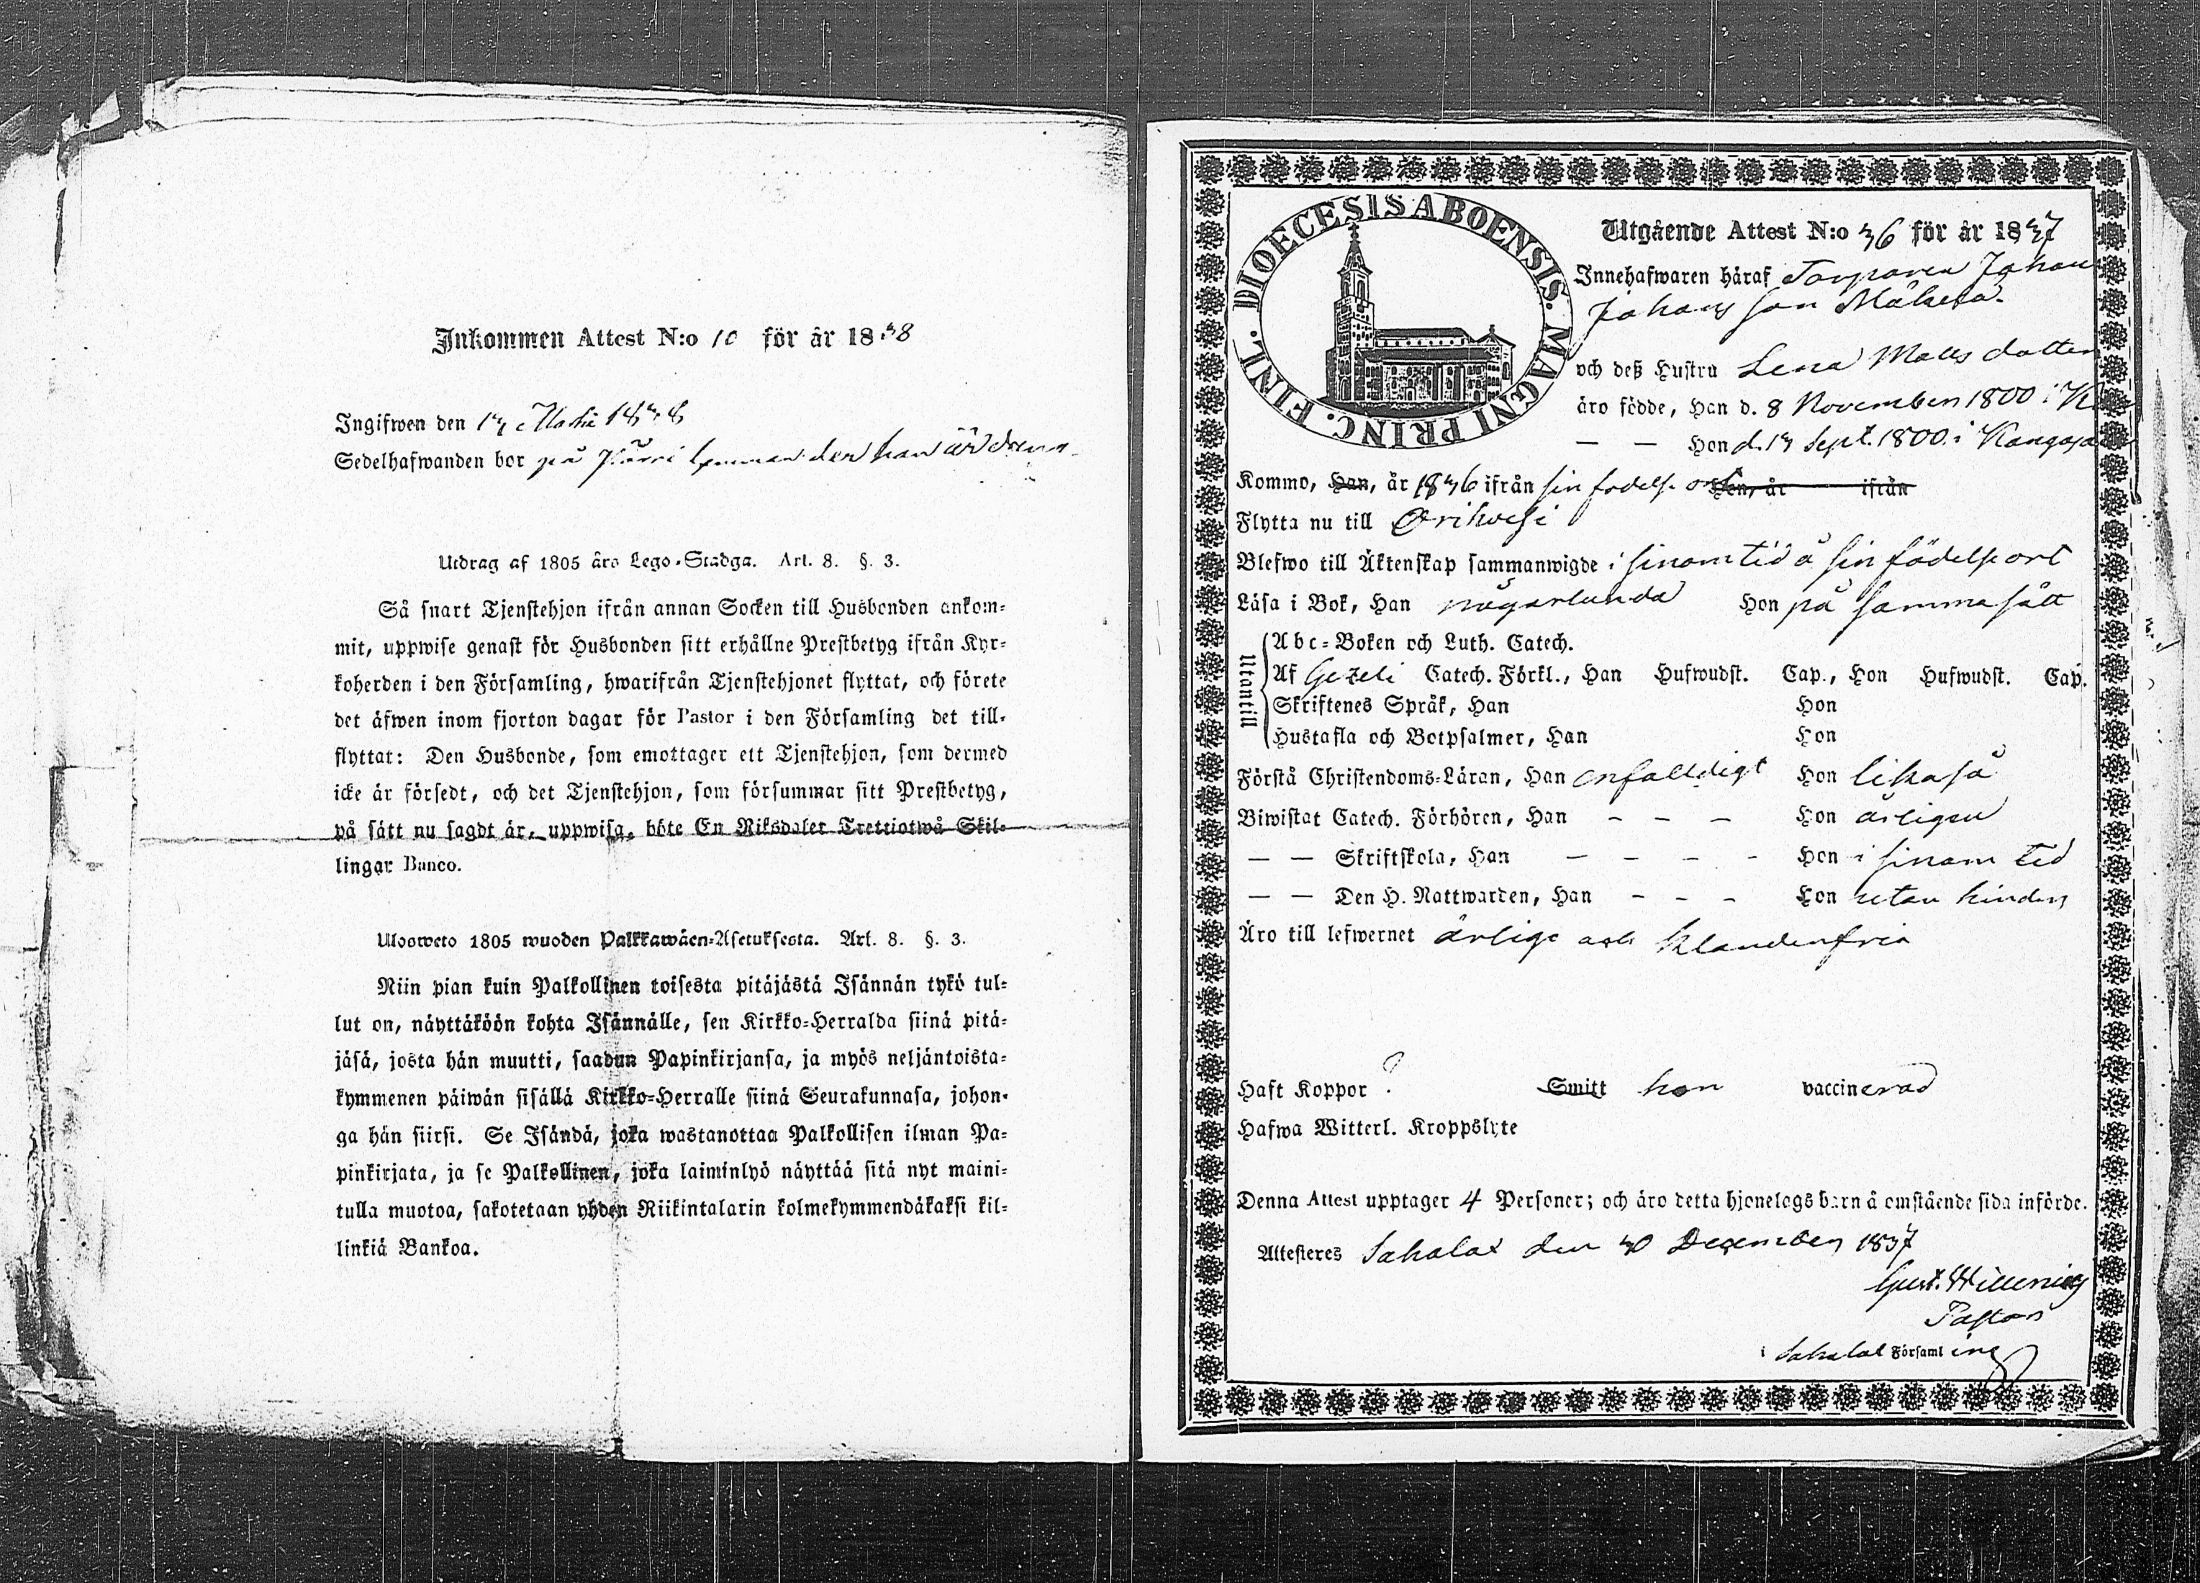 Inkommen Attest N:o 10 för år 1838
Ingifwen den 13 Martii 1838
Sedelhafwanden bor på der han är dreng
Utdrag af 1805 års Lego-Stadga. Art. 8. §. 3.
Så snart Tjenstehjon ifrån annan Socken till Husbonden ankom-
mit, uppwise genast för Husbonden sitt erhållne Prestbetyg ifrån Kyr-
koherden i den Församling, hwarifrån Tjenstehjonet flyttat, och förete
det äfwen inom fjorton dagar för Pastor i den Församling det till-
flyttat: Den Husbonde, som emottager ett Tjenstehjon, som dermed
icke är försedt, och det Tjenstehjon, som försummar sitt Prestbetyg,
på sätt nu sagdt är, uppwisa, böte En Riksdaler Trettiotwå Skil-
lingar Banco.
Ulosweto 1805 wuoden Palkkawäen-Asetuksesta. Art. 8. §. 3.
Niin pian kuin Palkollinen toisesta pitäjästä Isännän tykö tul-
lut on, näyttäköön kohta Isännälle, sen Kirkko-Herralda siinä pitä-
jäsä, josta hän muutti, saadun Papinkirjansa, ja myös neljäntoista-
kymmenen päiwän sisällä Kirkko-Herralle siinä Seurakunnasa, johon-
ga hän siirsi. Se Isändä, joka wastanottaa Palkollisen ilman Pa-
pinkirjata, ja se Palkollinen, joka laiminlyö näyttää sitä nyt maini-
tulla muotoa, sakotetaan yhden Riikintalarin kolmekymmendäkaksi kil-
linkiä Bankoa.
DIOECESIS ABOENSIS. MAGNI PRINC. FINL.
Utgående Attest N:o 36 för år 1837
Innehafwaren häraf Torparen Johan
Johans son Mäkelä
och deß Hustru Lena Matts dotter
äro födde, Han d. 8 November 1800 i
— — Hon d. 13 Sept. 1800 i Kangasa
Kommo, Han, år 1836 ifrån sin födelse ort Hon, år ifrån
Flytta nu till Orihvesi
Blefwo till Äktenskap sammanwigde i sinom tid å sin födelse ort
Läsa i Bok, Han någorlunda Hon på samma sätt
Utantill
Abc-Boken och Luth. Catech.
Af Gezeli Catech. Förkl., Han Hufwudst. Cap., Hon Hufwudst. Cap.
Skriftenes Språk, Han Hon
Hustafla och Botpsalmer, Han Hon
Förstå Christendoms-Läran, Han enfalldigt Hon likaså
Biwistat Catech. Förhören, Han – – – Hon årligen
— — Skriftskola, Han – – – – Hon i sinom tid
— — Den H. Nattwarden, Han – – – Hon utan hinder
Äro till lefwernet ärlige och klanderfria
Haft Koppor ? Smitt hon vaccinerad
Hafwa Witterl. Kroppslyte
Denna Attest upptager 4 Personer; och äro detta hjonelags barn å omstående sida införde.
Attesteres Sahalax den 30 December 1837
Gust. Willenius
Pastor
i Sahalax Församling